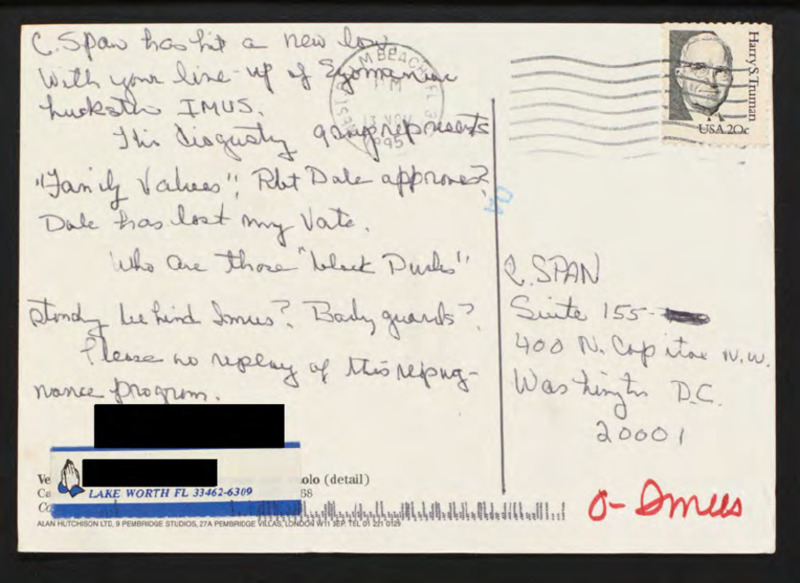 C. Span has hit a new low
With your line-up of Egomaniac
huckster IMUS.
This disgusting group represents
"Family Values", Rbt Dole approves?
Dole has lost my Vote.
Who are those "black Dudes"
standing behind Imus? Body guards?
Please no replay of this repug-
nance program.
WEST PALM BEACH, FL 3
PM
13 NOV
1995
Harry S Truman
USA 20c
C. SPAN
Suite 155-
400 N. Capitol N.W.
Washington D.C.
20001
O- Imus
LAKE WORTH FL 33462-6309
Ve olo (detail)
Ca 68
Co
ALAN HUTCHISON LTD, 9 PEMBRIDGE STUDIOS, 27A PEMBRIDGE VILLAS, LONDON W11 3EP. TEL 01 221 0129